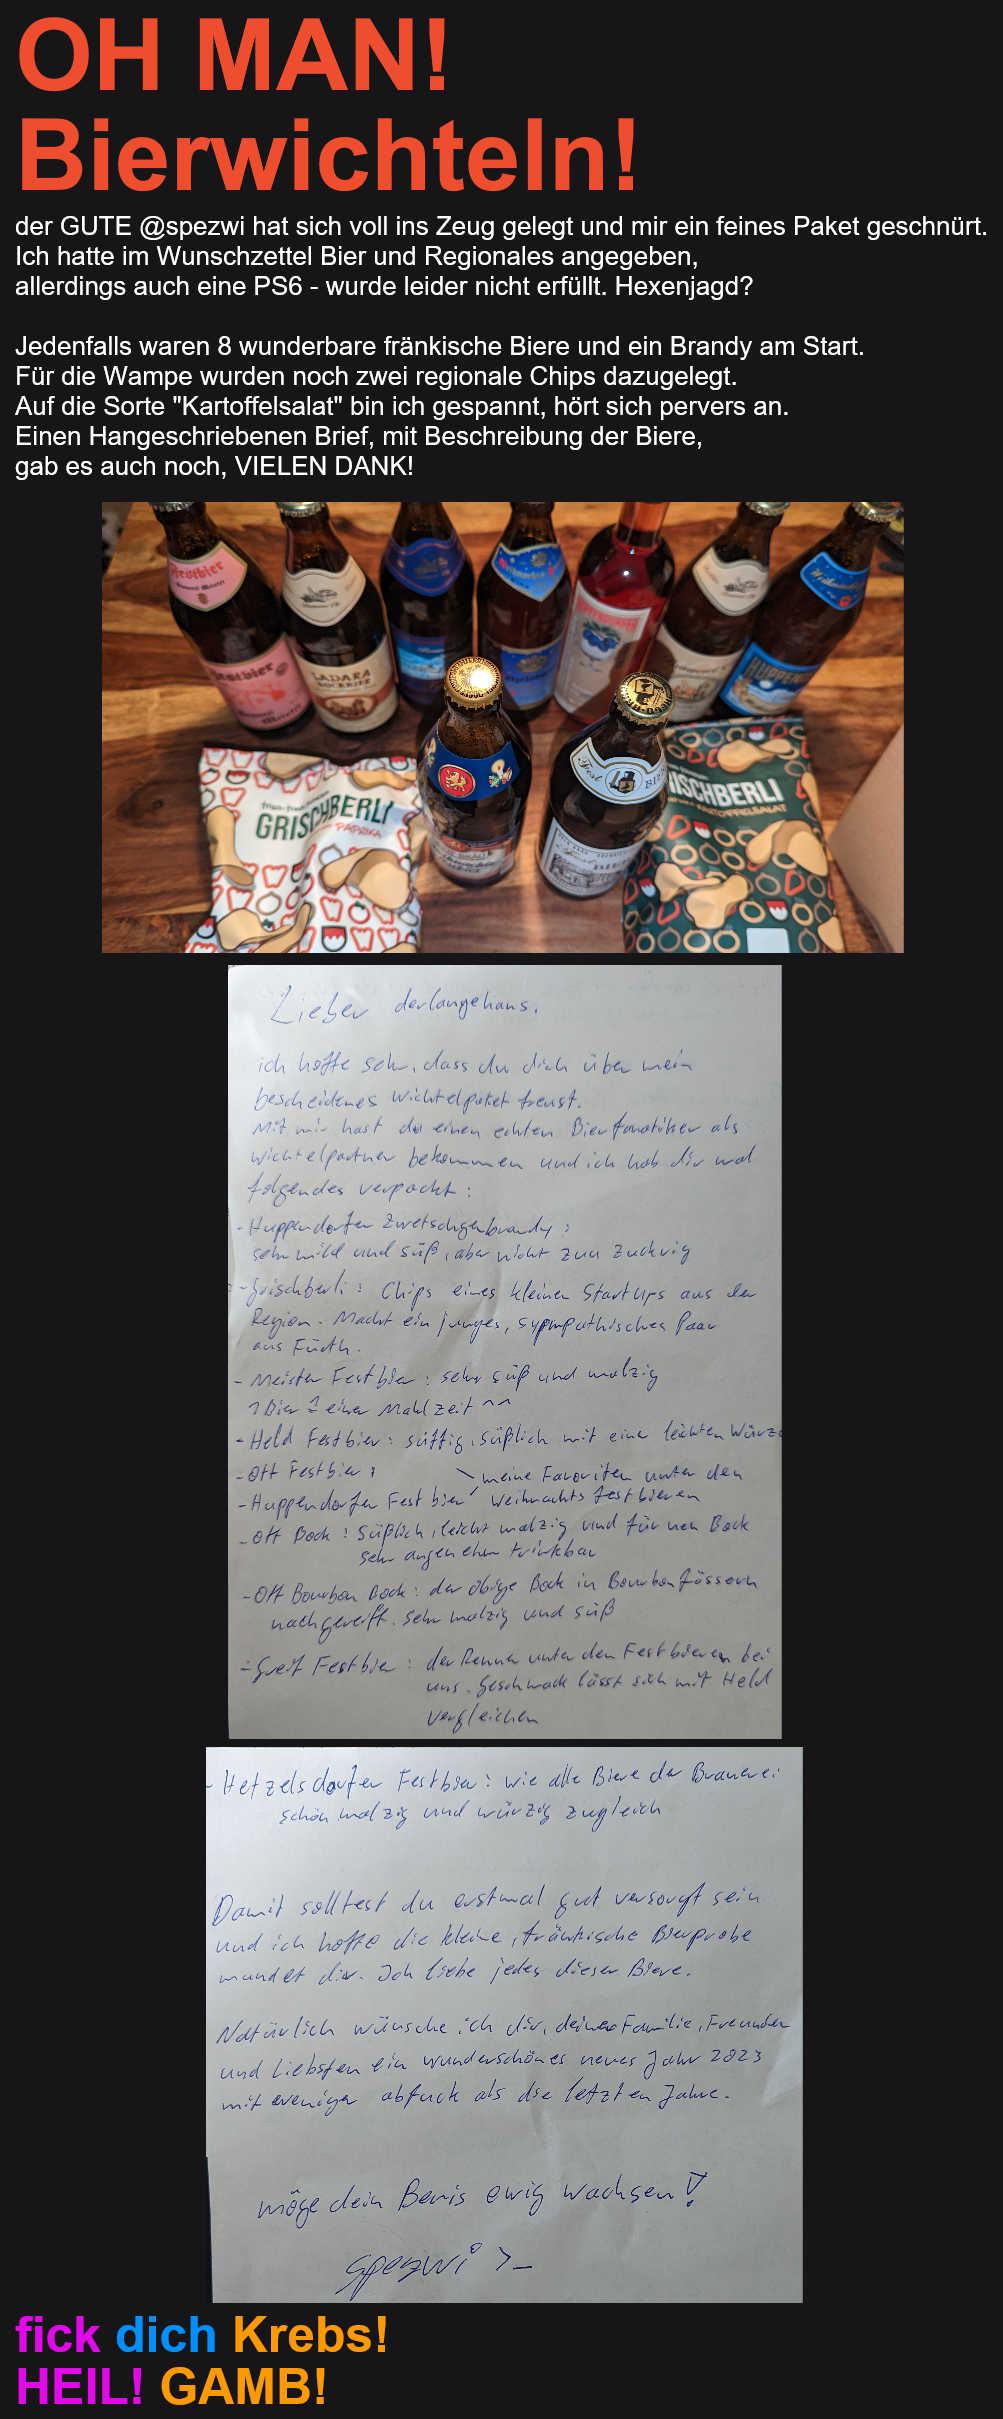 OH MAN!
Bierwichteln!
der GUTE @spezwi hat sich voll ins Zeug gelegt und mir ein feines Paket geschnürt.
Ich hatte im Wunschzettel Bier und Regionales angegeben,
allerdings auch eine PS6 - wurde leider nicht erfüllt. Hexenjagd?
Jedenfalls waren 8 wunderbare fränkische Biere und ein Brandy am Start.
Für die Wampe wurden noch zwei regionale Chips dazugelegt.
Auf die Sorte "Kartoffelsalat" bin ich gespannt, hört sich pervers an.
Einen Hangeschriebenen Brief, mit Beschreibung der Biere,
gab es auch noch, VIELEN DANK!
Festbier
Festbier
LADARA
BOCKBIER
HUPPEN
Fest BI
GRISCHBERLI
PAPRIKA
RISCHBERLI
KARTOFFELSALAT
Lieber derlangehans,
ich hoffe sehr, dass du dich über mein
bescheidenes Wichtelpaket freust.
Mit mir hast du einen echten Bierfanatiker als
Wichtelpartner bekommen und ich hab dir mal
folgendes verpackt:
- Huppendorfer Zwetschgenbrandy:
sehr mild und süß, aber nicht zu zuckrig
- Grischberli: Chips eines kleinen StartUps aus der
Region. Macht ein junges, sympathisches Paar
aus Fürth.
- Meister Festbier: sehr süß und malzig
1 Bier ≙ einer Mahlzeit ^^
- Held Festbier: süffig, süßlich mit einer leichten Würze
- Ott Festbier: \ meine Favoriten unter den
- Huppendorfer Festbier / Weihnachtsfestbieren
- Ott Bock: süßlich, leicht malzig und für nen Bock
sehr angenehm trinkbar
- Ott Bourbon Bock: der obige Bock in Bourbonfässern
nachgereift. Sehr malzig und süß
- Greif Festbier: der Renner unter den Festbieren bei
uns. Geschmack lässt sich mit Held
vergleichen
- Hetzelsdorfer Festbier: wie alle Biere der Brauerei
schön malzig und würzig zugleich
Damit solltest du erstmal gut versorgt sein
und ich hoffe die kleine, fränkische Bierprobe
mundet dir. Ich liebe jedes dieser Biere.
Natürlich wünsche ich dir, deiner Familie, Freunden
und Liebsten ein wunderschönes neues Jahr 2023
mit weniger abfuck als die letzten Jahre.
möge dein Benis ewig wachsen!
spezwi >_
fick dich Krebs!
HEIL! GAMB!